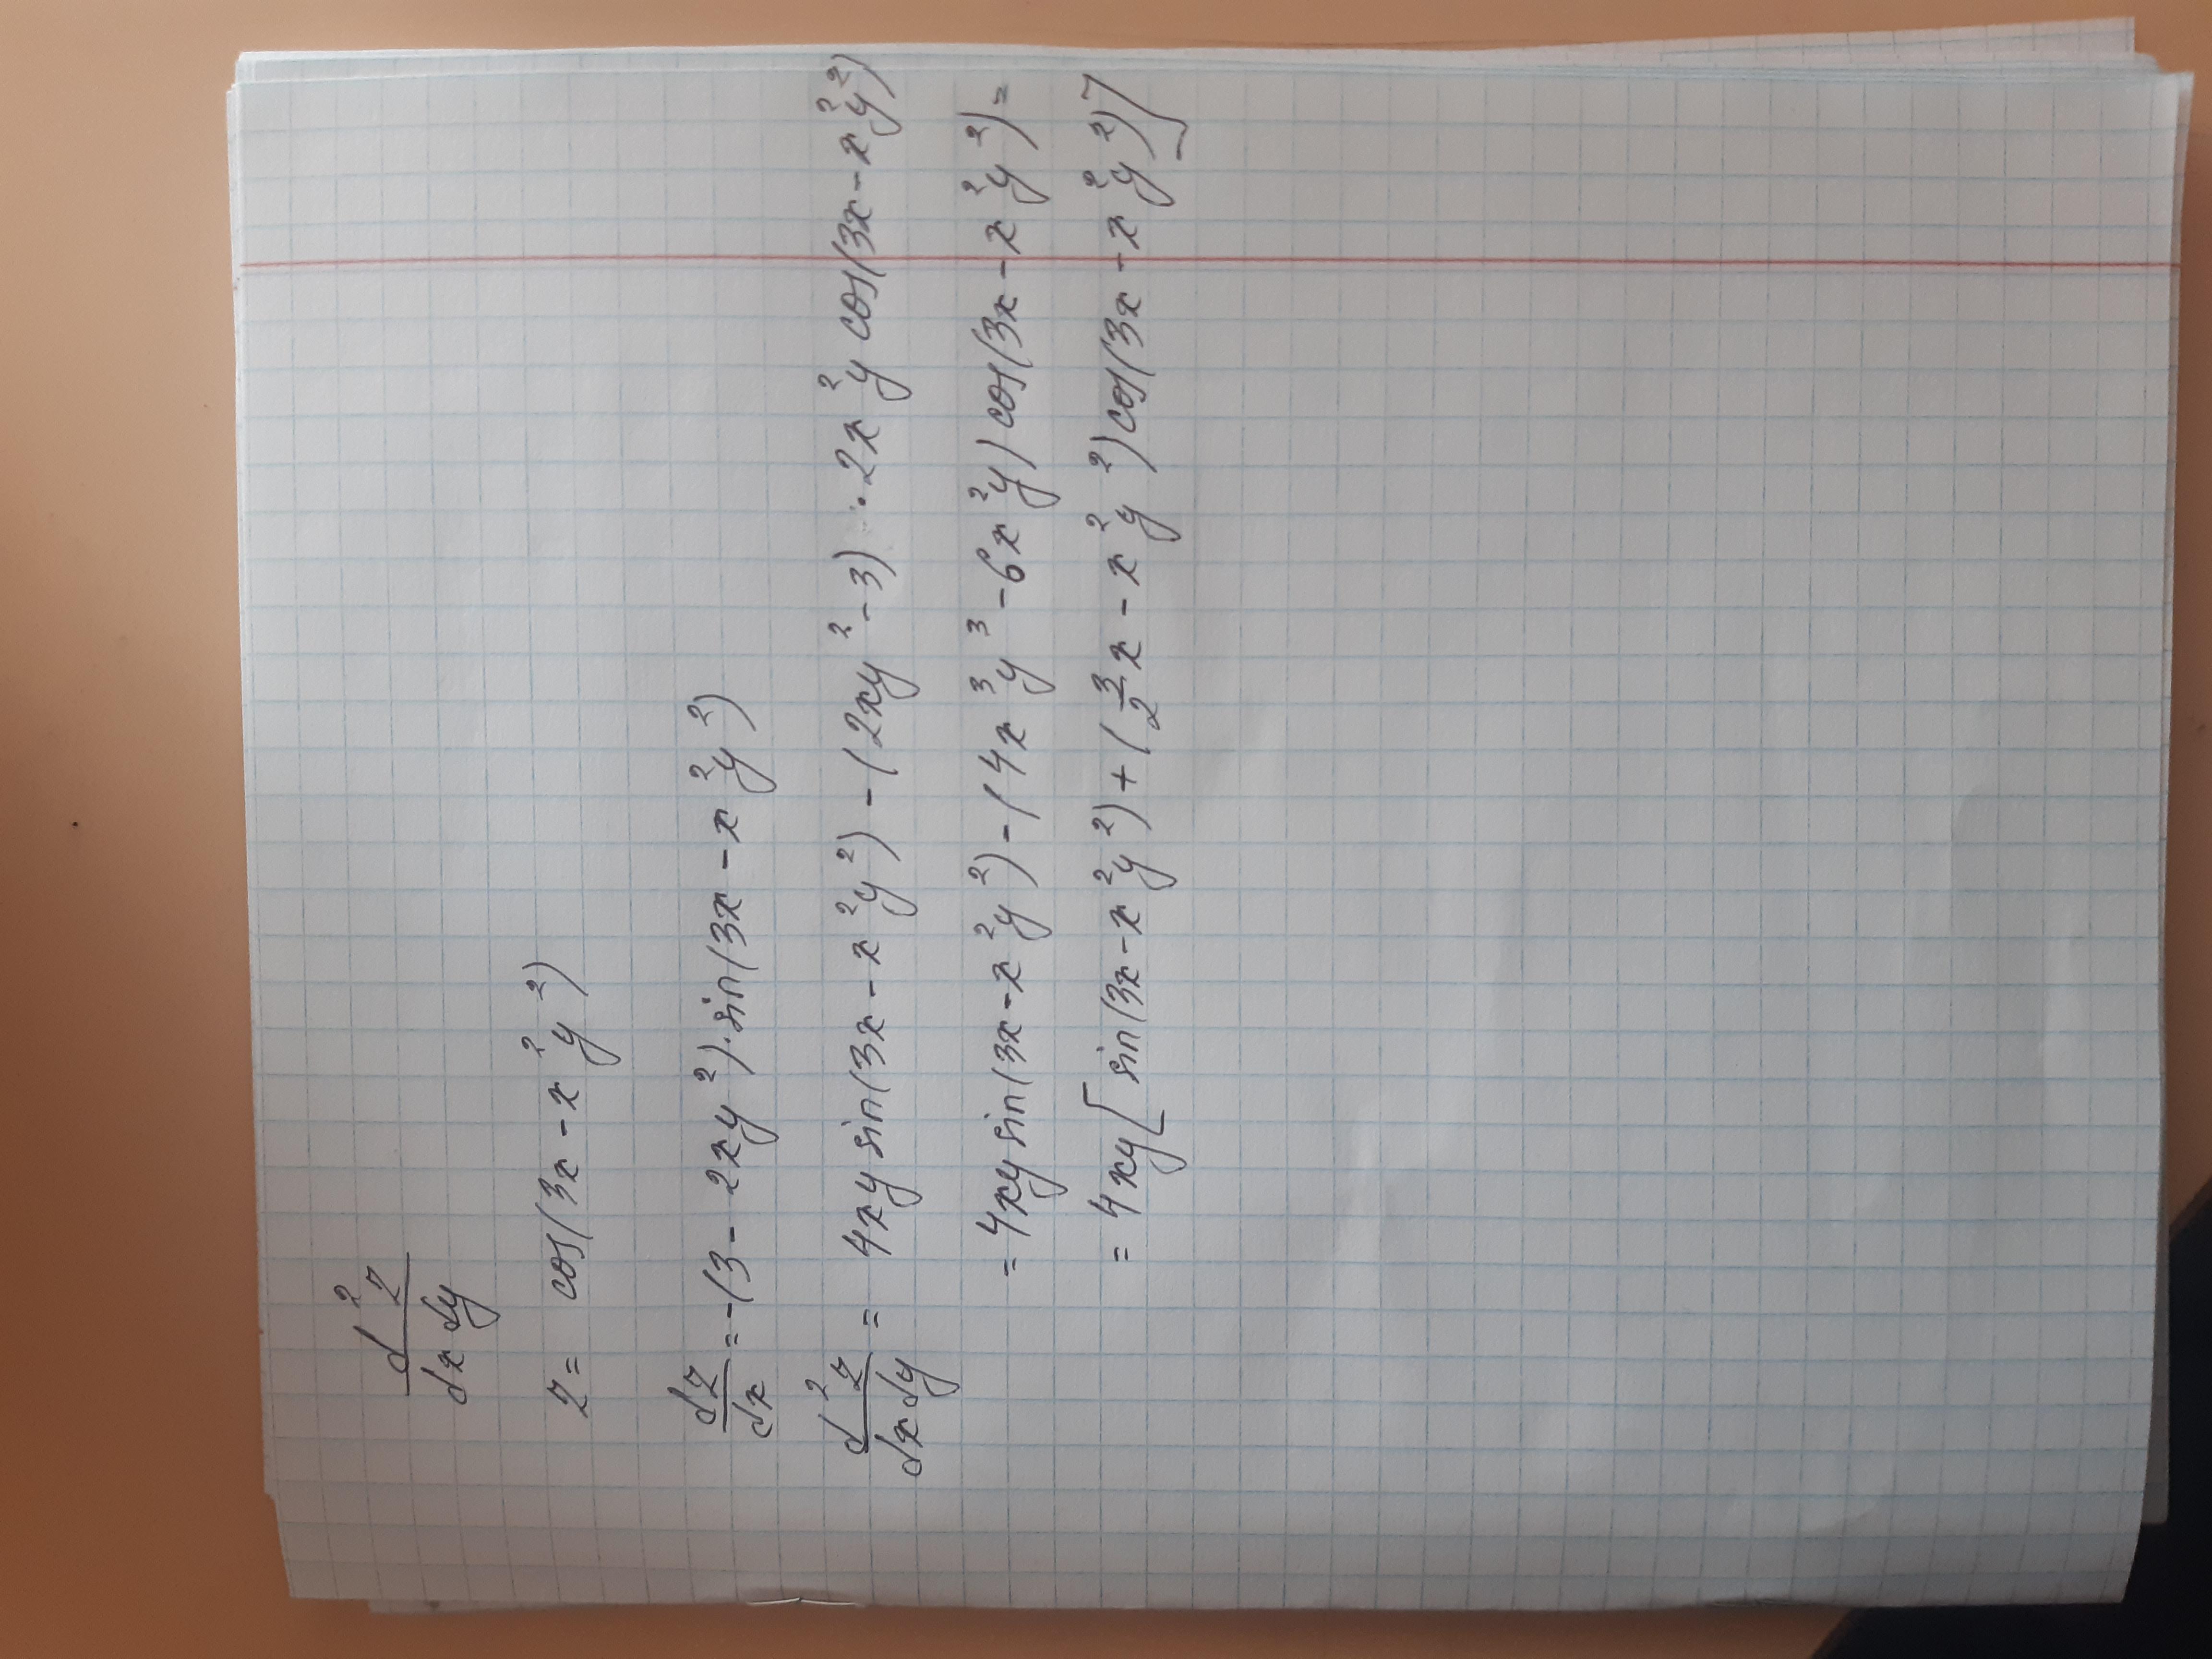 d²z/dxdy
z = cos(3x - x²y²)
dz/dx = -(3 - 2xy²)·sin(3x - x²y²)
d²z/dxdy = 4xy sin(3x - x²y²) - (2xy² - 3)·2x²y cos(3x - x²y²)
= 4xy sin(3x - x²y²) - (4x³y³ - 6x²y) cos(3x - x²y²) =
= 4xy[sin(3x - x²y²) + (3/2x - x²y²) cos(3x - x²y²)]